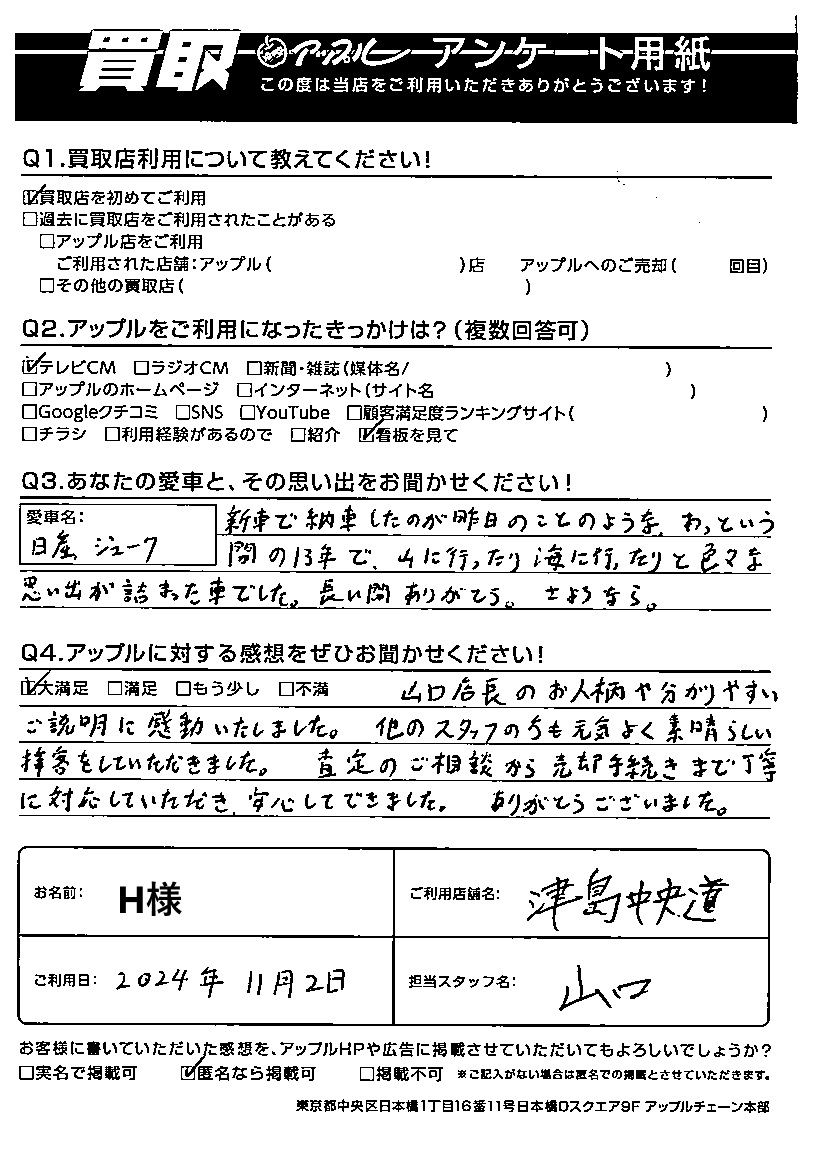 買取 アップル アンケート用紙
この度は当店をご利用いただきありがとうございます!
Q1.買取店利用について教えてください!
☑買取店を初めてご利用
□過去に買取店をご利用されたことがある
□アップル店をご利用
ご利用された店舗:アップル( )店 アップルへのご売却( 回目)
□その他の買取店( )
Q2.アップルをご利用になったきっかけは?(複数回答可)
☑テレビCM □ラジオCM □新聞・雑誌(媒体名/ )
□アップルのホームページ □インターネット(サイト名 )
□Googleクチコミ □SNS □YouTube □顧客満足度ランキングサイト( )
□チラシ □利用経験があるので □紹介 ☑看板を見て
Q3.あなたの愛車と、その思い出をお聞かせください!
愛車名:
日産 ジューク
新車で納車したのが昨日のことのような、わっという
間の13年で、山に行ったり海に行ったりと色々な
思い出が詰まった車でした。長い間ありがとう。さようなら。
Q4.アップルに対する感想をぜひお聞かせください!
☑大満足 □満足 □もう少し □不満 山口店長のお人柄や分かりやすい
ご説明に感動いたしました。他のスタッフのうも元気よく素晴らしい
接客をしていただきました。査定のご相談から売却手続きまで丁寧
に対応していただき、安心してできました。ありがとうございました。
お名前: H様 ご利用店舗名: 津島中央道
ご利用日: 2024年 11月2日 担当スタッフ名: 山口
お客様に書いていただいた感想を、アップルHPや広告に掲載させていただいてもよろしいでしょうか?
□実名で掲載可 ☑匿名なら掲載可 □掲載不可 ※ご記入がない場合は匿名での掲載とさせていただきます。
東京都中央区日本橋1丁目16番11号日本橋Dスクエア9F アップルチェーン本部